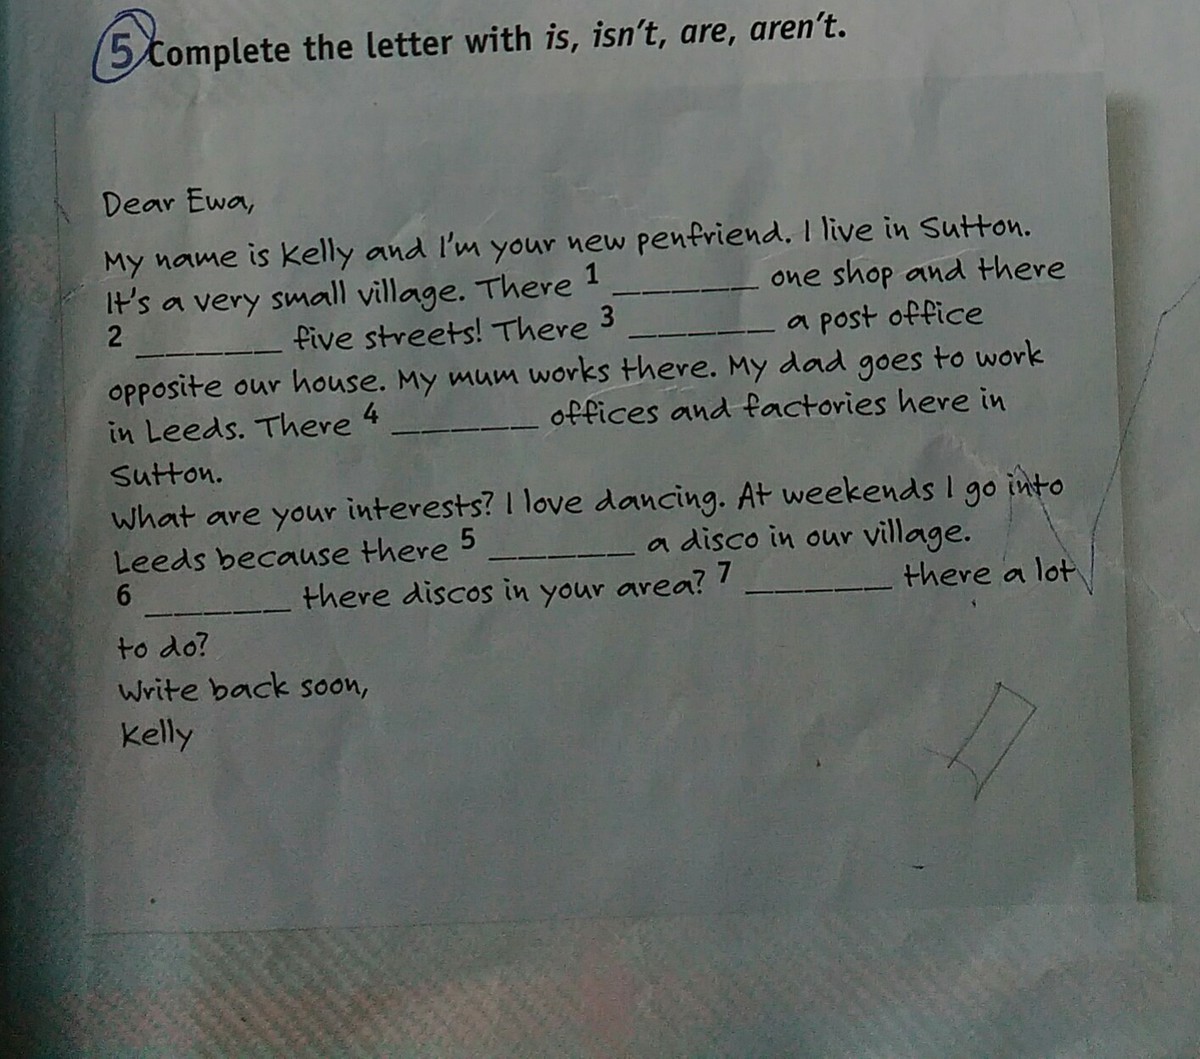 5 Complete the letter with is, isn't, are, aren't.
Dear Ewa,
My name is Kelly and I'm your new penfriend. I live in Sutton.
It's a very small village. There 1 ______ one shop and there
2 ______ five streets! There 3 ______ a post office
opposite our house. My mum works there. My dad goes to work
in Leeds. There 4 ______ offices and factories here in
Sutton.
What are your interests? I love dancing. At weekends I go into
Leeds because there 5 ______ a disco in our village.
6 ______ there discos in your area? 7 ______ there a lot
to do?
Write back soon,
Kelly